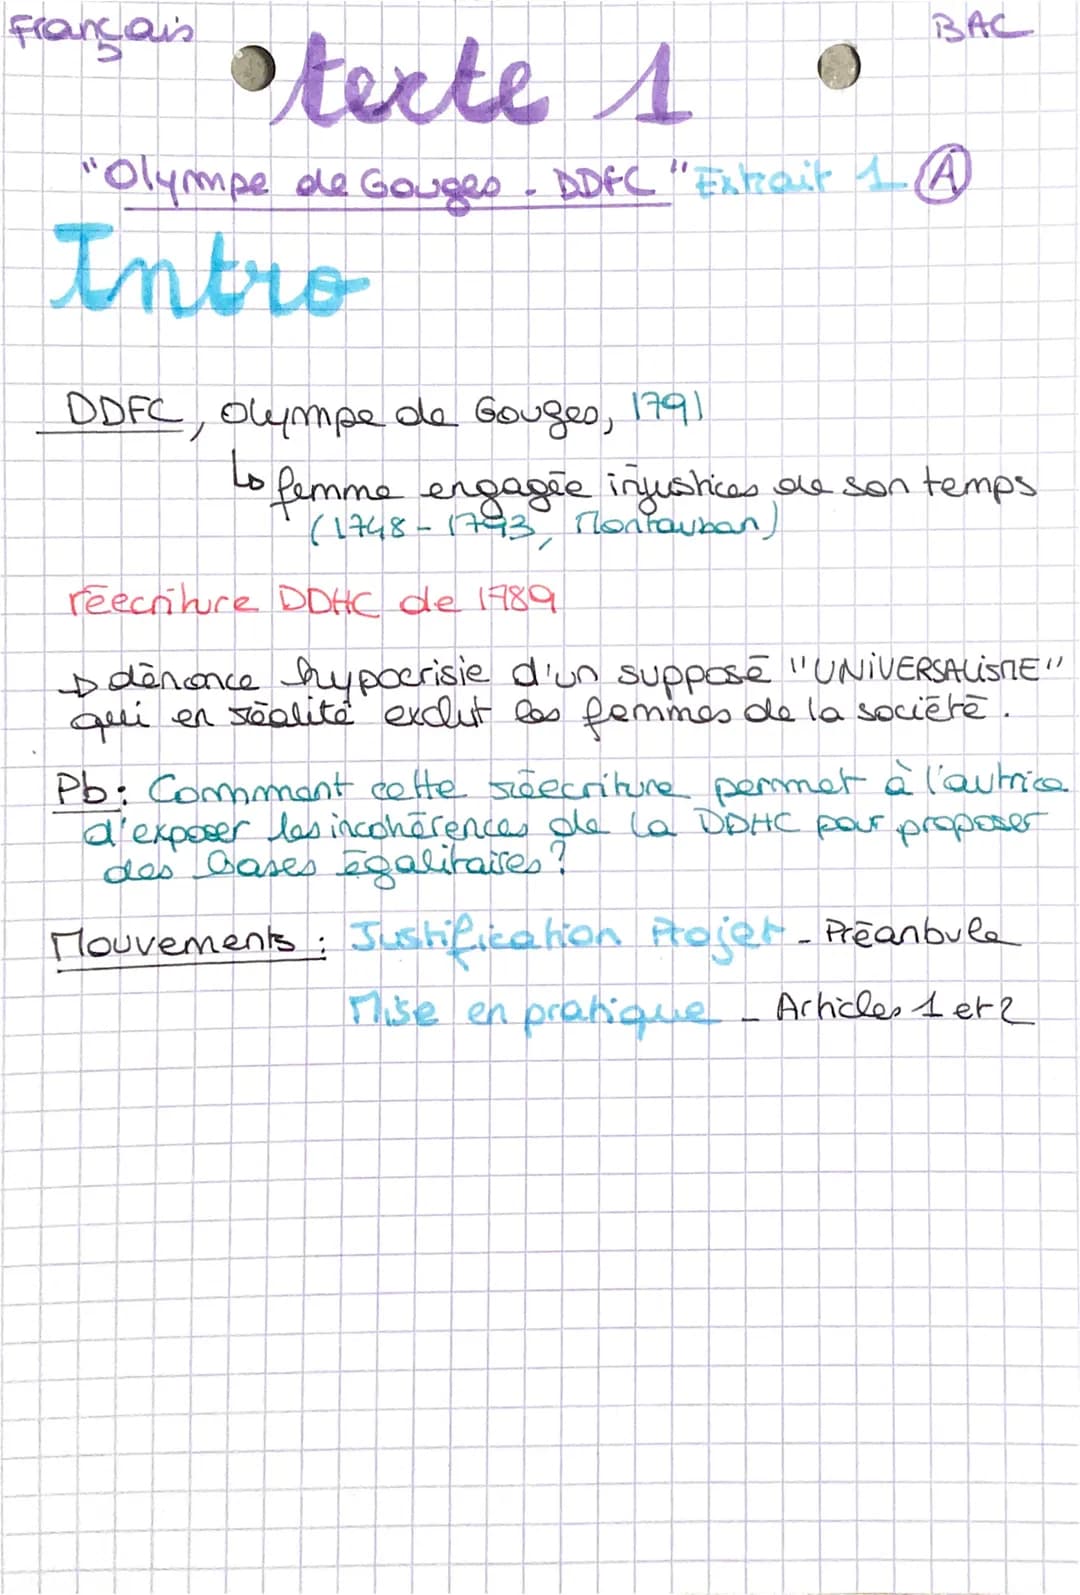 Français
BAC
texte 1
"Olympe de Gouges - DDFC" Extrait 1 A
Intro
DDFC, Olympe de Gouges, 1791
↳ femme engagée injustices de son temps
(1748 - 1793, Montauban)
réecriture DDHC de 1789
↳ dénonce hypocrisie d'un supposé "UNIVERSALISME"
qui en réalité exclut les femmes de la société.
Pb : Comment cette réécriture permet à l'autrice
d'exposer les incohérences de la DDHC pour proposer
des bases égalitaires ?
Mouvements : Justification Projet - Préanbule
Mise en pratique - Articles 1 et 2